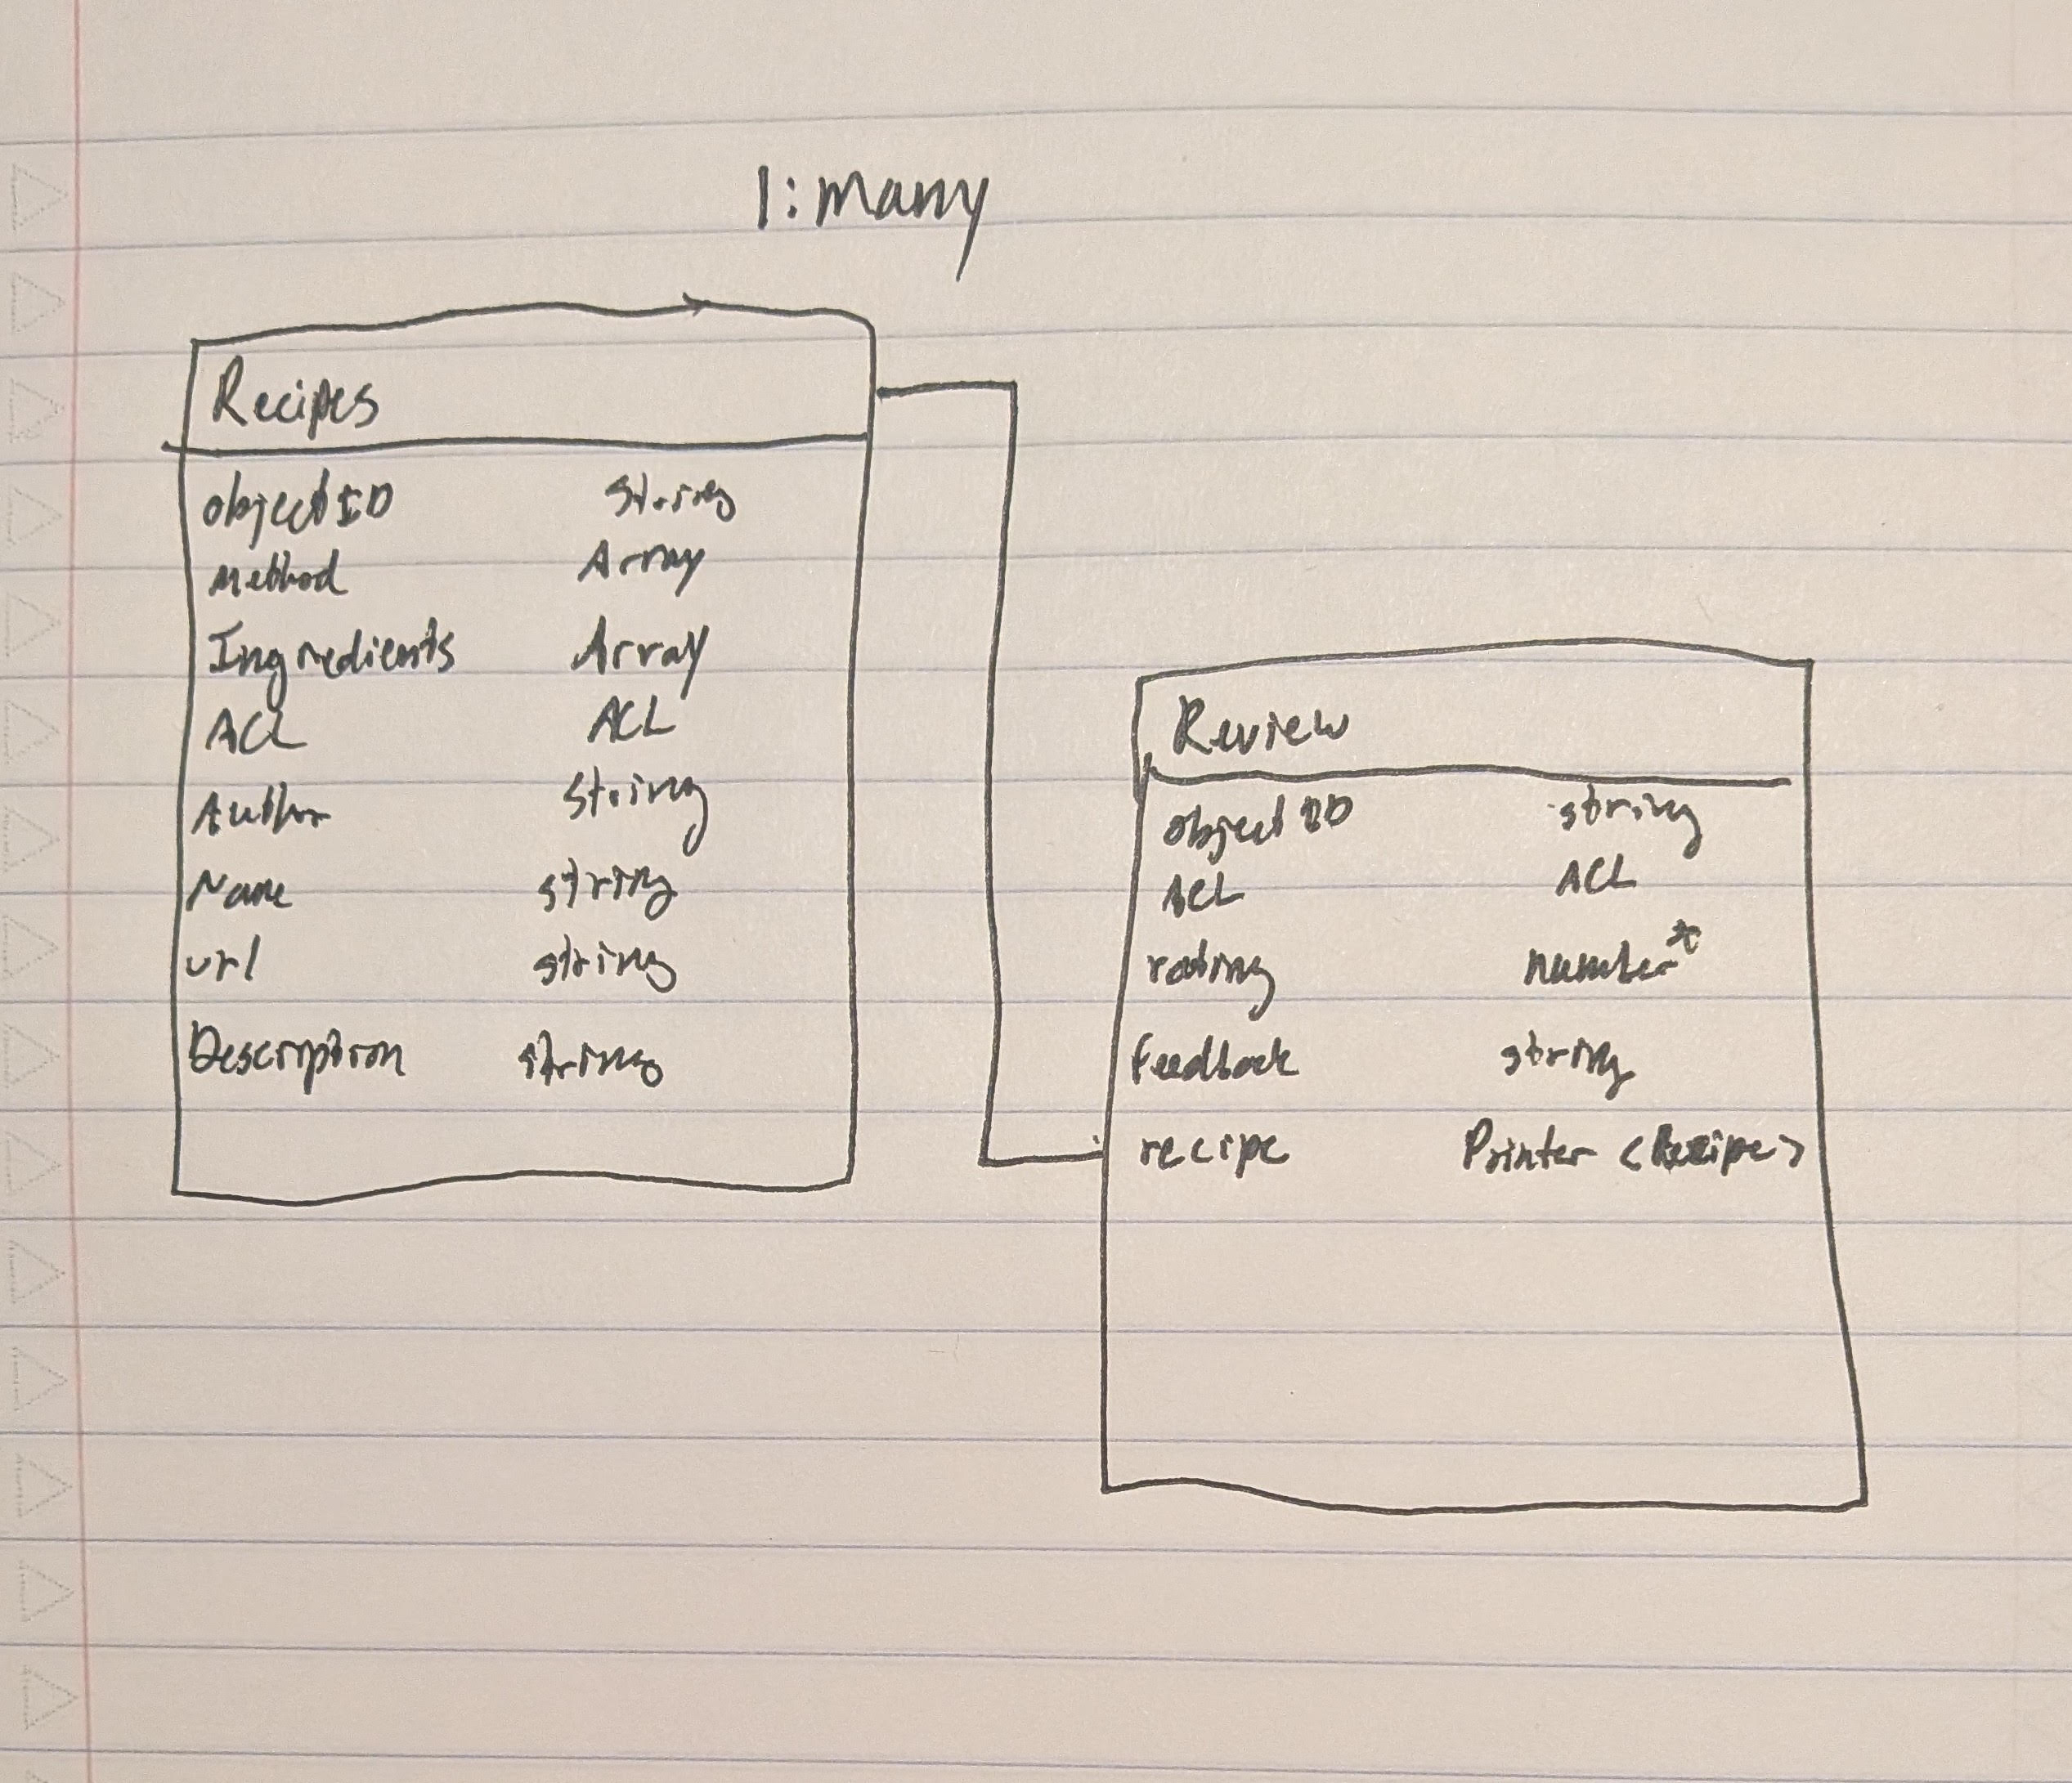 1:many
Recipes
objectID string
Method Array
Ingredients Array
ACL ACL
Author string
Name string
url string
Description string
Review
objectID string
ACL ACL
rating number*
Feedback string
recipe Pointer <Recipe>